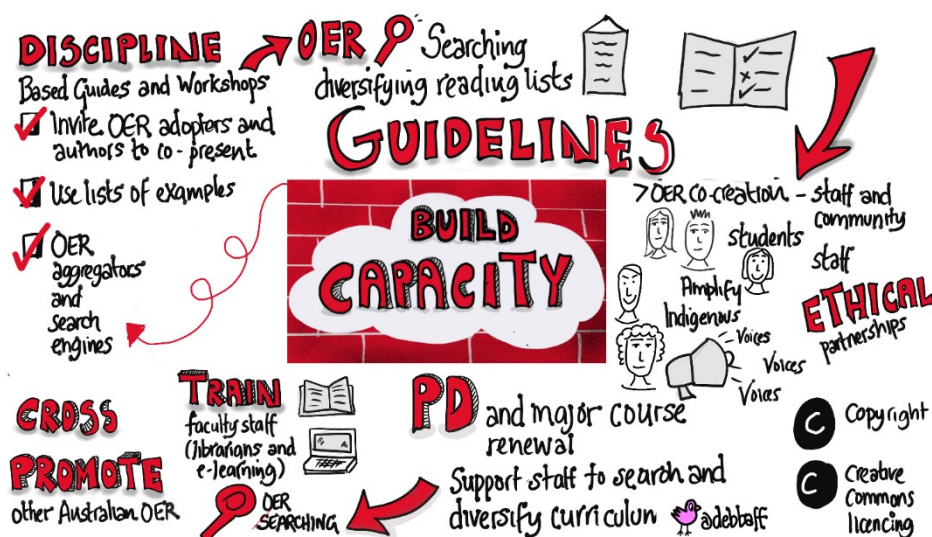 DISCIPLINE
Based Guides and Workshops
Invite OER adopters and
authors to co-present
Use lists of examples
OER
aggregators
and
search
engines
OER
Searching
diversifying reading lists
GUIDELINES
BUILD
CAPACITY
> OER co-creation – staff and
community
students
staff
Amplify
Indigenous
Voices
Voices
Voices
ETHICAL
partnerships
CROSS
PROMOTE
other Australian OER
TRAIN
faculty staff
(librarians and
e-learning)
OER
SEARCHING
PD and major course
renewal
Support staff to search and
diversify curriculun
@debbaff
C Copyright
C Creative
Commons
licencing